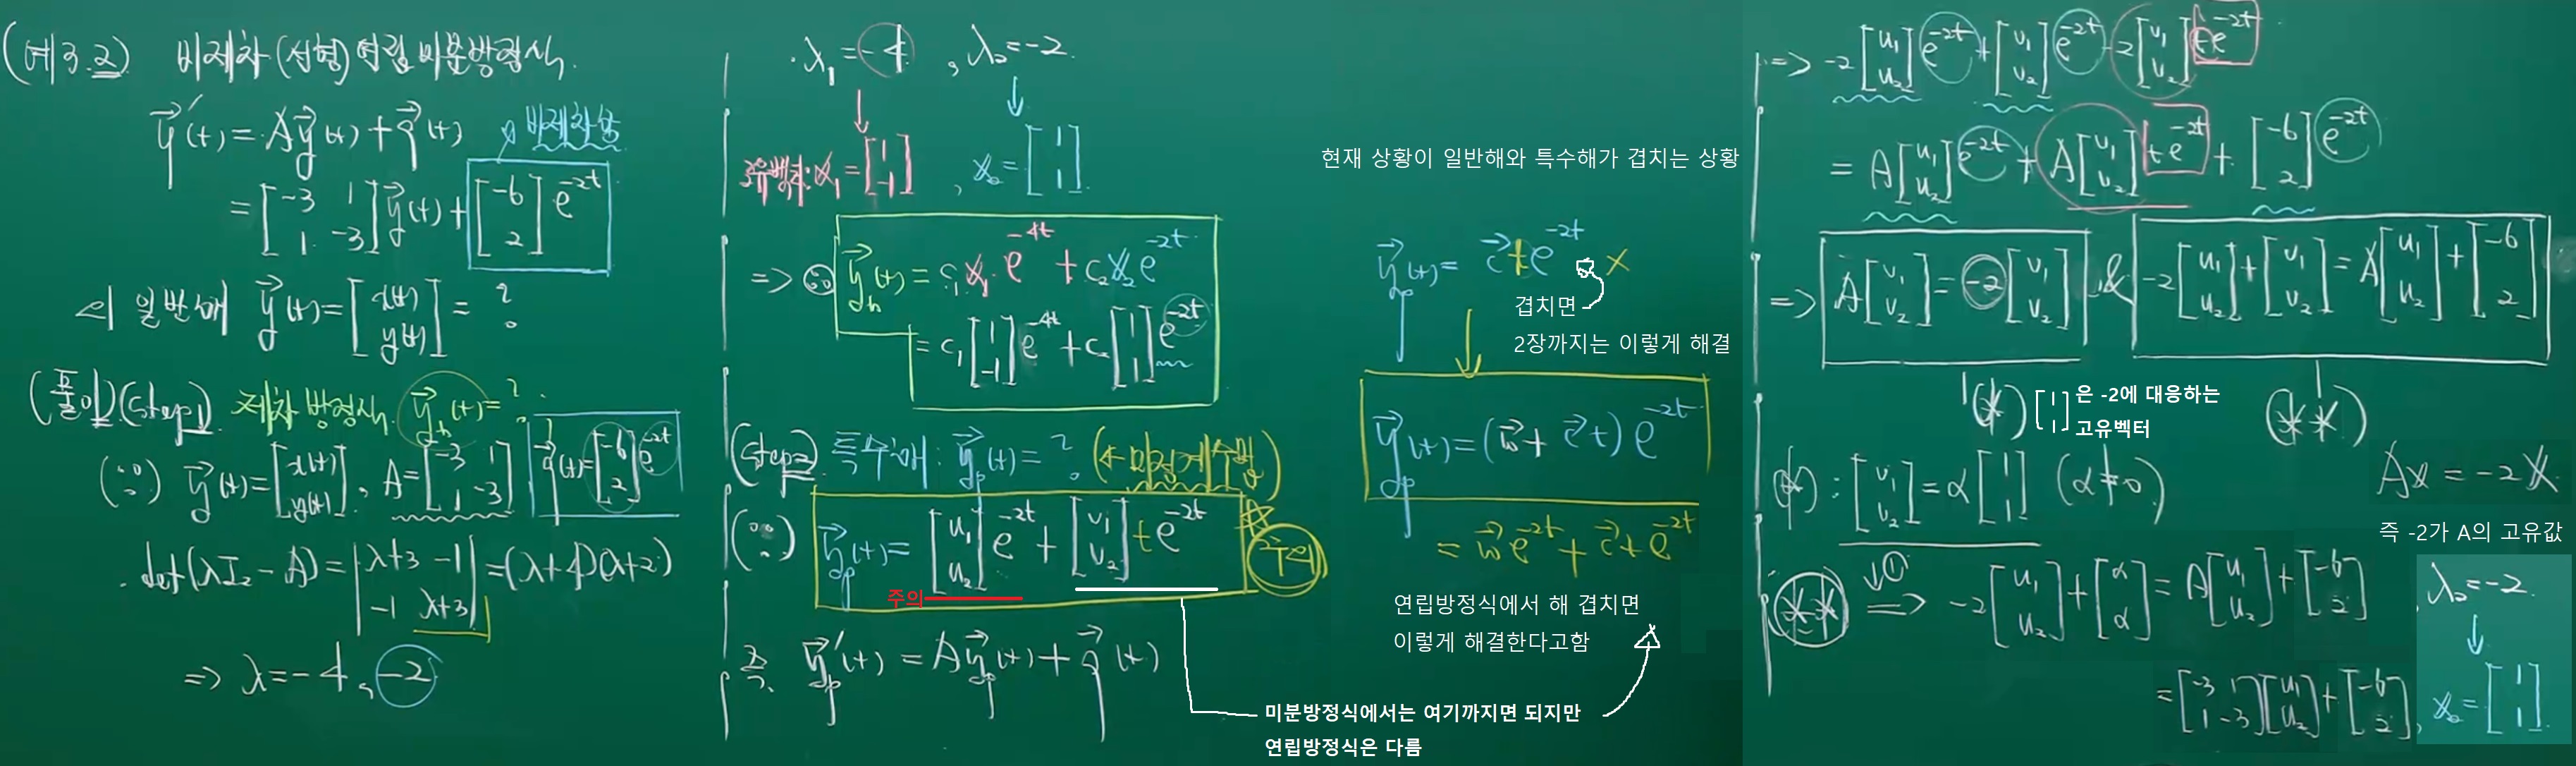 (예3.2) 비제차(선형)연립미분방정식.
y⃗'(t) = A y⃗(t) + q⃗(t) 비제차항
= [-3 1; 1 -3] y⃗(t) + [-6; 2] e^{-2t}
의 일반해 y⃗(t) = [x(t); y(t)] = ?
(풀이)(Step1) 제차방정식. y⃗_h(t) = ?
(∵) y⃗(t) = [x(t); y(t)], A = [-3 1; 1 -3] q⃗(t) = [-6; 2] e^{-2t}
· det(λI₂ - A) = |λ+3 -1; -1 λ+3| = (λ+4)(λ+2)
=> λ = -4, -2
· λ₁ = -4, λ₂ = -2.
↓ ↓
고유벡터: x₁ = [1; -1], x₂ = [1; 1].
=> ∴ y⃗_h(t) = c₁x₁e^{-4t} + c₂x₂e^{-2t}
= c₁[1; -1]e^{-4t} + c₂[1; 1]e^{-2t}
(Step2) 특수해: y⃗_p(t) = ? (←미정계수법)
(∵) y⃗_p(t) = [u₁; u₂] e^{-2t} + [v₁; v₂] t e^{-2t} ☆ 주의
주의
즉, y⃗_p'(t) = A y⃗_p(t) + q⃗(t)
미분방정식에서는 여기까지면 되지만
연립방정식은 다름
현재 상황이 일반해와 특수해가 겹치는 상황
y⃗_p(t) = c⃗ t e^{-2t} ×
겹치면
2장까지는 이렇게 해결
↓
y⃗_p(t) = (w⃗ + c⃗ t) e^{-2t}
= w⃗ e^{-2t} + c⃗ t e^{-2t}
연립방정식에서 해 겹치면
이렇게 해결한다고함
=> -2[u₁; u₂] e^{-2t} + [v₁; v₂] e^{-2t} - 2[v₁; v₂] t e^{-2t}
= A[u₁; u₂] e^{-2t} + A[v₁; v₂] t e^{-2t} + [-6; 2] e^{-2t}
=> A[v₁; v₂] = -2[v₁; v₂] & -2[u₁; u₂] + [v₁; v₂] = A[u₁; u₂] + [-6; 2]
(*) [1; 1] 은 -2에 대응하는
고유벡터
(**)
(*) : [v₁; v₂] = α[1; 1] (α≠0)
Ax = -2x
즉 -2가 A의 고유값
(**) ↓① => -2[u₁; u₂] + [α; α] = A[u₁; u₂] + [-6; 2]
= [-3 1; 1 -3][u₁; u₂] + [-6; 2],
, λ₂ = -2.
↓
x₂ = [1; 1].